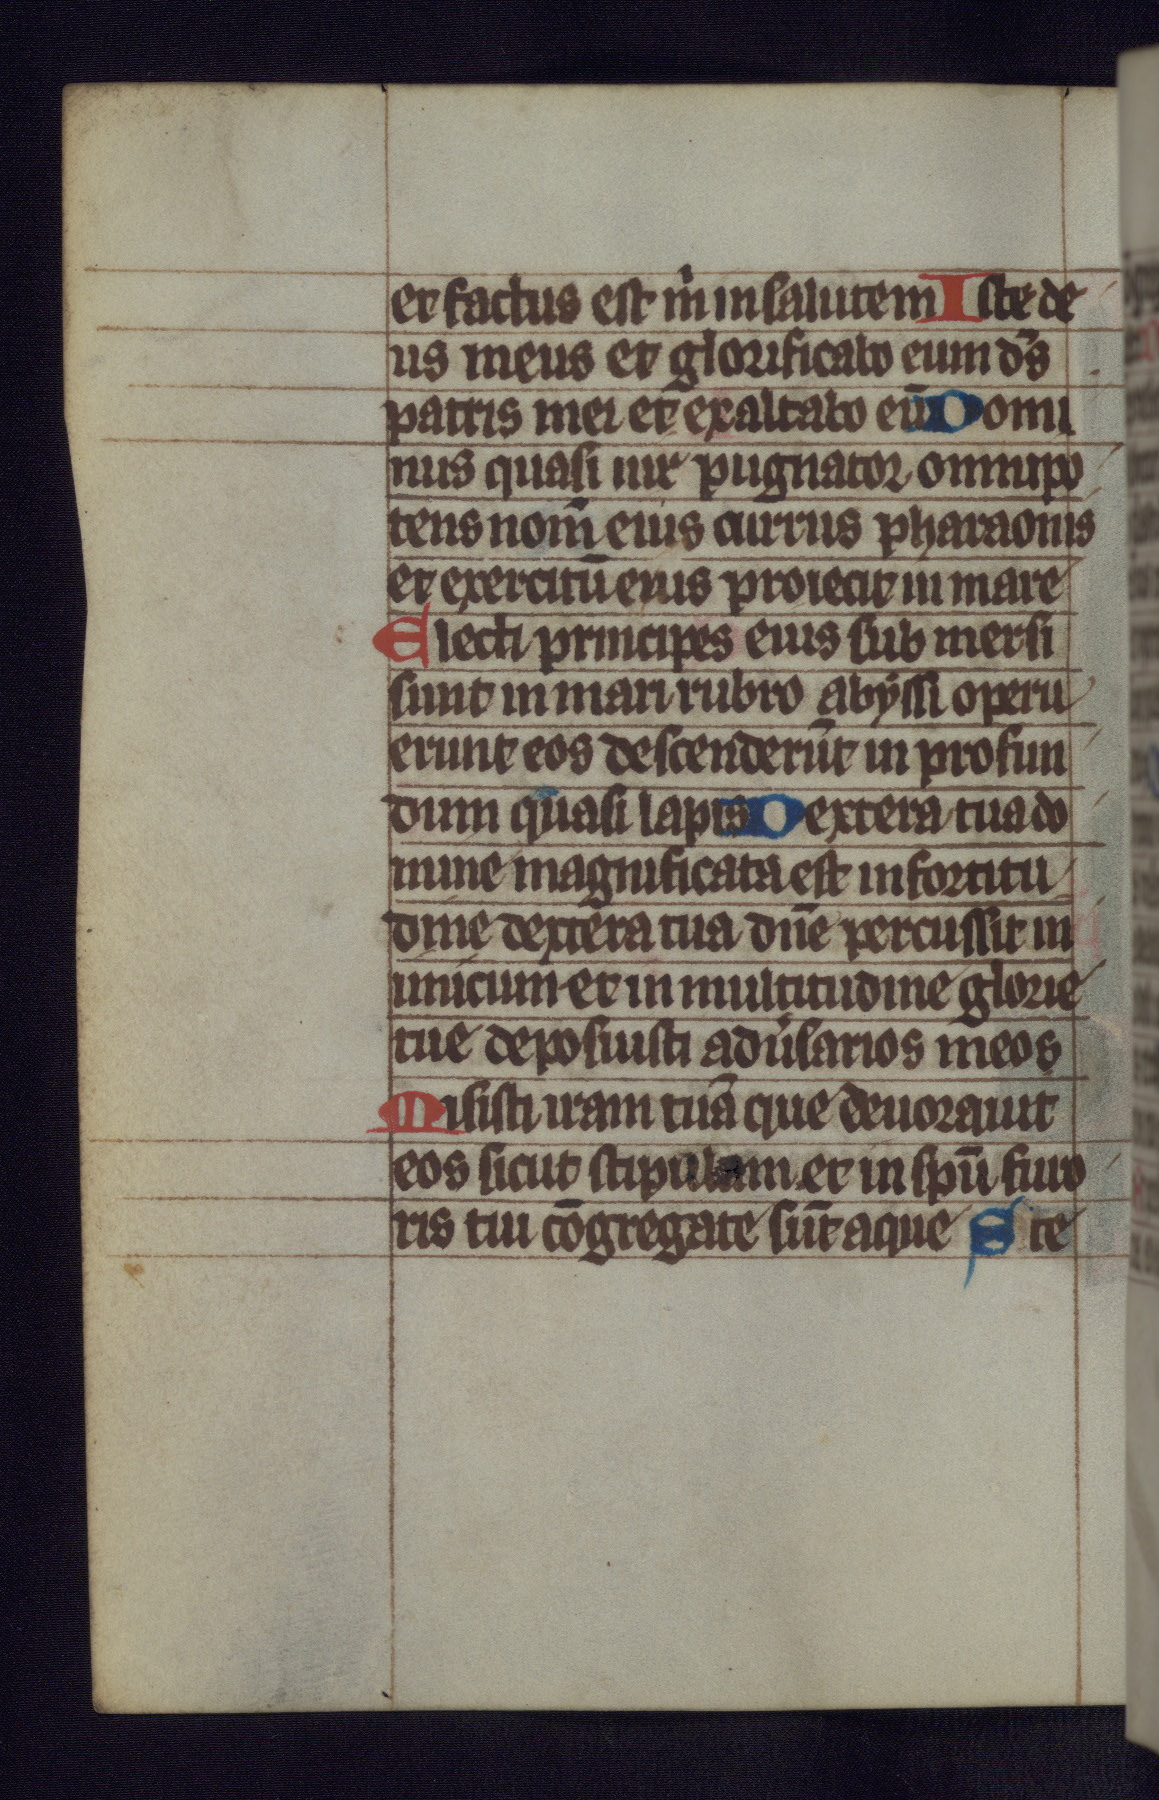 et factus est m̄ in salutem Iste de
us meus et glorificabo eum d̄s
patris mei et exaltabo eū Domi
nus quasi uir pugnator omnipo
tens nom̄ eius currus pharaonis
et exercitū eius proiecit in mare
Electi principes eius sub mersi
sunt in mari rubro abyssi operu
erunt eos descenderūt in profun
dum quasi lapis Dextera tua do
mine magnificata est in fortitu
dine dextera tua dn̄e percussit in
imicum et in multitudine glorie
tue deposuisti adūsarios meos
Misisti iram tuā que deuorauit
eos sicut stipulam et in spū furo
ris tui cōgregate sūt aque Ste